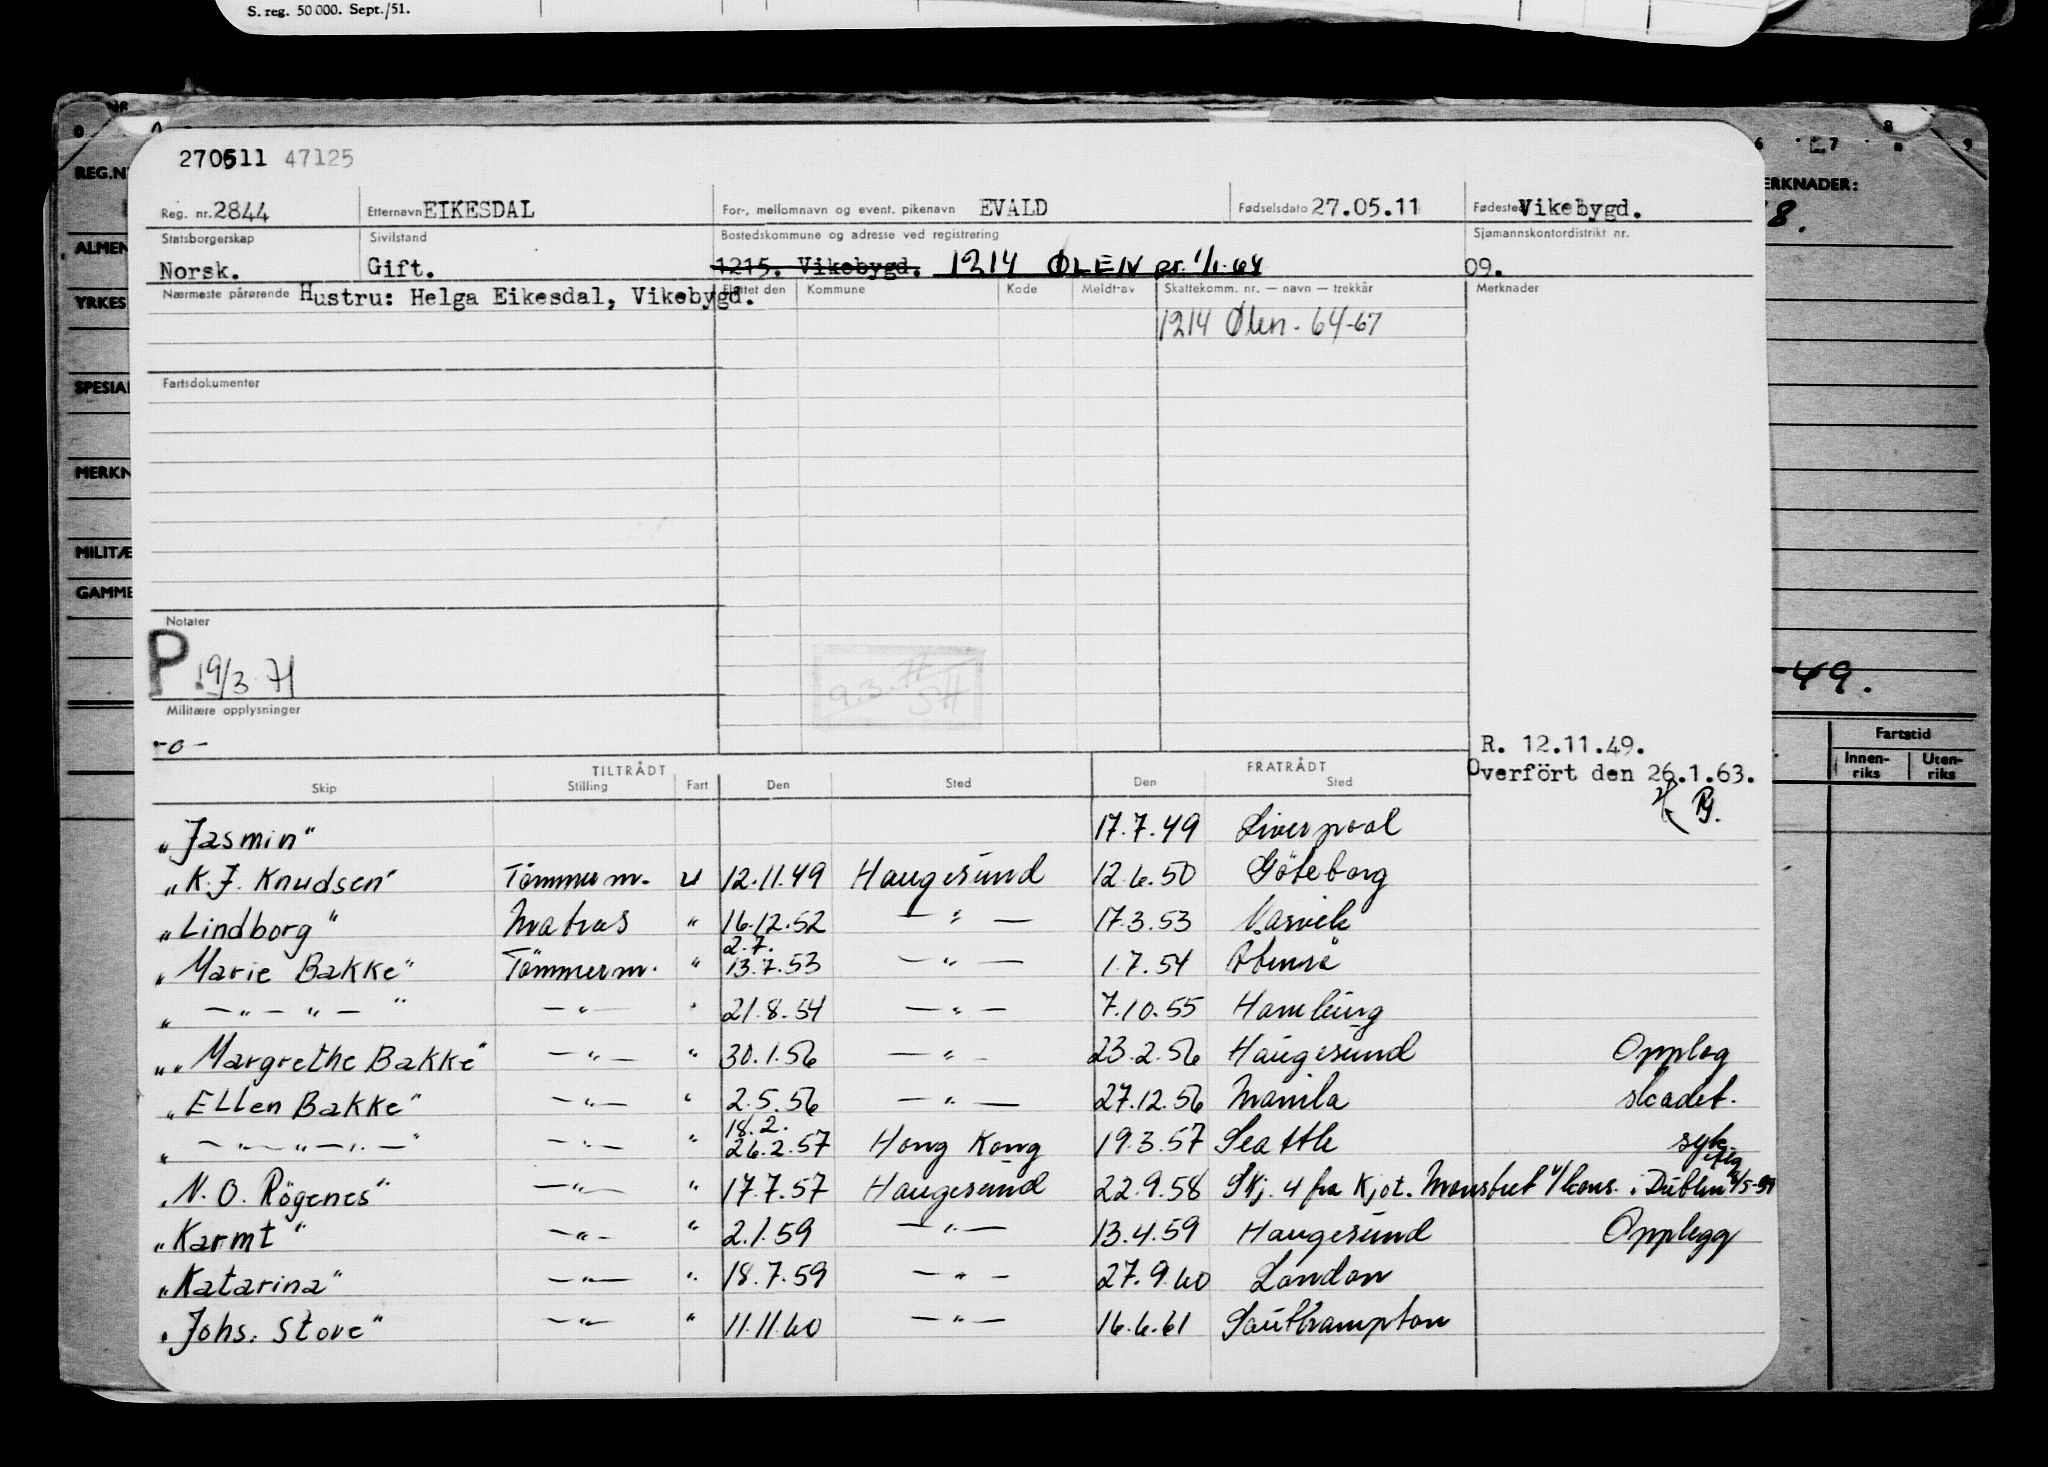 S. reg. 50 000. Sept./51.
270511 47125
REG.N
ERKNADER:
8.
Reg. nr. 2844 Etternavn EIKESDAL For-, mellomnavn og event. pikenavn EVALD Fødselsdato 27.05.11 Fødested Vikebygd.
ALMEN
Statsborgerskap Sivilstand Bostedskommune og adresse ved registrering Sjømannskontordistrikt nr.
Norsk. Gift. 1215. Vikebygd. 1214 ØLEN pr. 1/1-64 09.
YRKES
Nærmeste pårørende Hustru: Helga Eikesdal, Vikebygd. Flyttet den Kommune Kode Meldt av Skattekomm. nr. — navn — trekkår Merknader
1214 Ølen - 64-67
SPESIA
Fartsdokumenter
MERKN
MILITÆ
GAMME
Notater
P 19/3 71
9.3.71
SH
-49.
Militære opplysninger
-o-
R. 12.11.49.
Overfört den 26.1.63.
Fartstid
Innen-riks Uten-riks
TILTRÅDT FRATRÅDT
Skip Stilling Fart Den Sted Den Sted
"Jasmin" 17.7.49 Liverpool
"K.J. Knudsen" Tömmerm. U 12.11.49 Haugesund 12.6.50 Göteborg
"Lindborg" Matros " 16.12.52 — " — 17.3.53 Narvik
2.7.
"Marie Bakke" Tömmerm. " 13.7.53 — " — 1.7.54 Åbenrå
" — " — " — " — " — " 21.8.54 — " — 7.10.55 Hamburg
"Margrethe Bakke" — " — " 30.1.56 — " — 23.2.56 Haugesund Opplag
"Ellen Bakke" — " — " 2.5.56 — " — 27.12.56 Manila skadet.
18.2.
" — " — " — " — " — " — " 26.2.57 Hong Kong 19.3.57 Seattle syk
"N.O. Rögenes" — " — " 17.7.57 Haugesund 22.9.58 Skj. 4 fra Kjpt. Mönstret v/kons. i Dublin
"Karmt" — " — " 2.1.59 — " — 13.4.59 Haugesund Opplegg
"Katarina" — " — " 18.7.59 — " — 27.9.60 London
"Johs. Stove" — " — " 11.11.60 — " — 16.6.61 Southampton